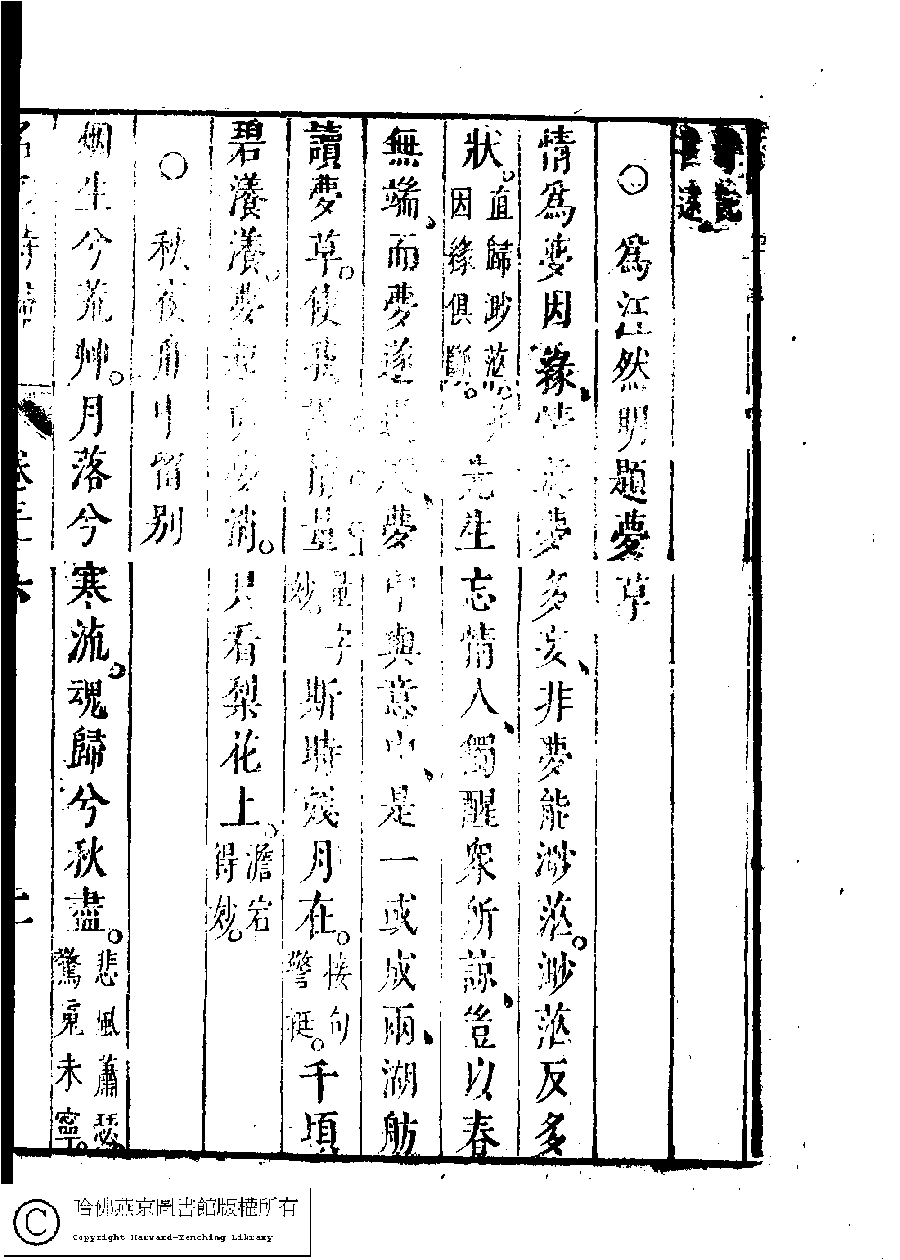 ○為汪然明題夢草
情為夢因緣情
夢多妄非夢能渺茫渺茫反多
狀直歸渺茫
因緣俱斷
先生忘情人獨醒衆所諒豈以春
無端而夢遂
夢中與意中是一或成兩湖舫
讀夢草使我
情量量字
妙
斯時殘月在接句
警挺
千頃
碧瀁瀁夢
消只看梨花上澹宕
得妙
○秋夜舟中留别
烟生兮荒艸月落兮寒流魂歸兮秋盡悲風蕭瑟
驚䰟未寧
哈佛燕京圖書館版權所有
Copyright Harvard-Yenching Library